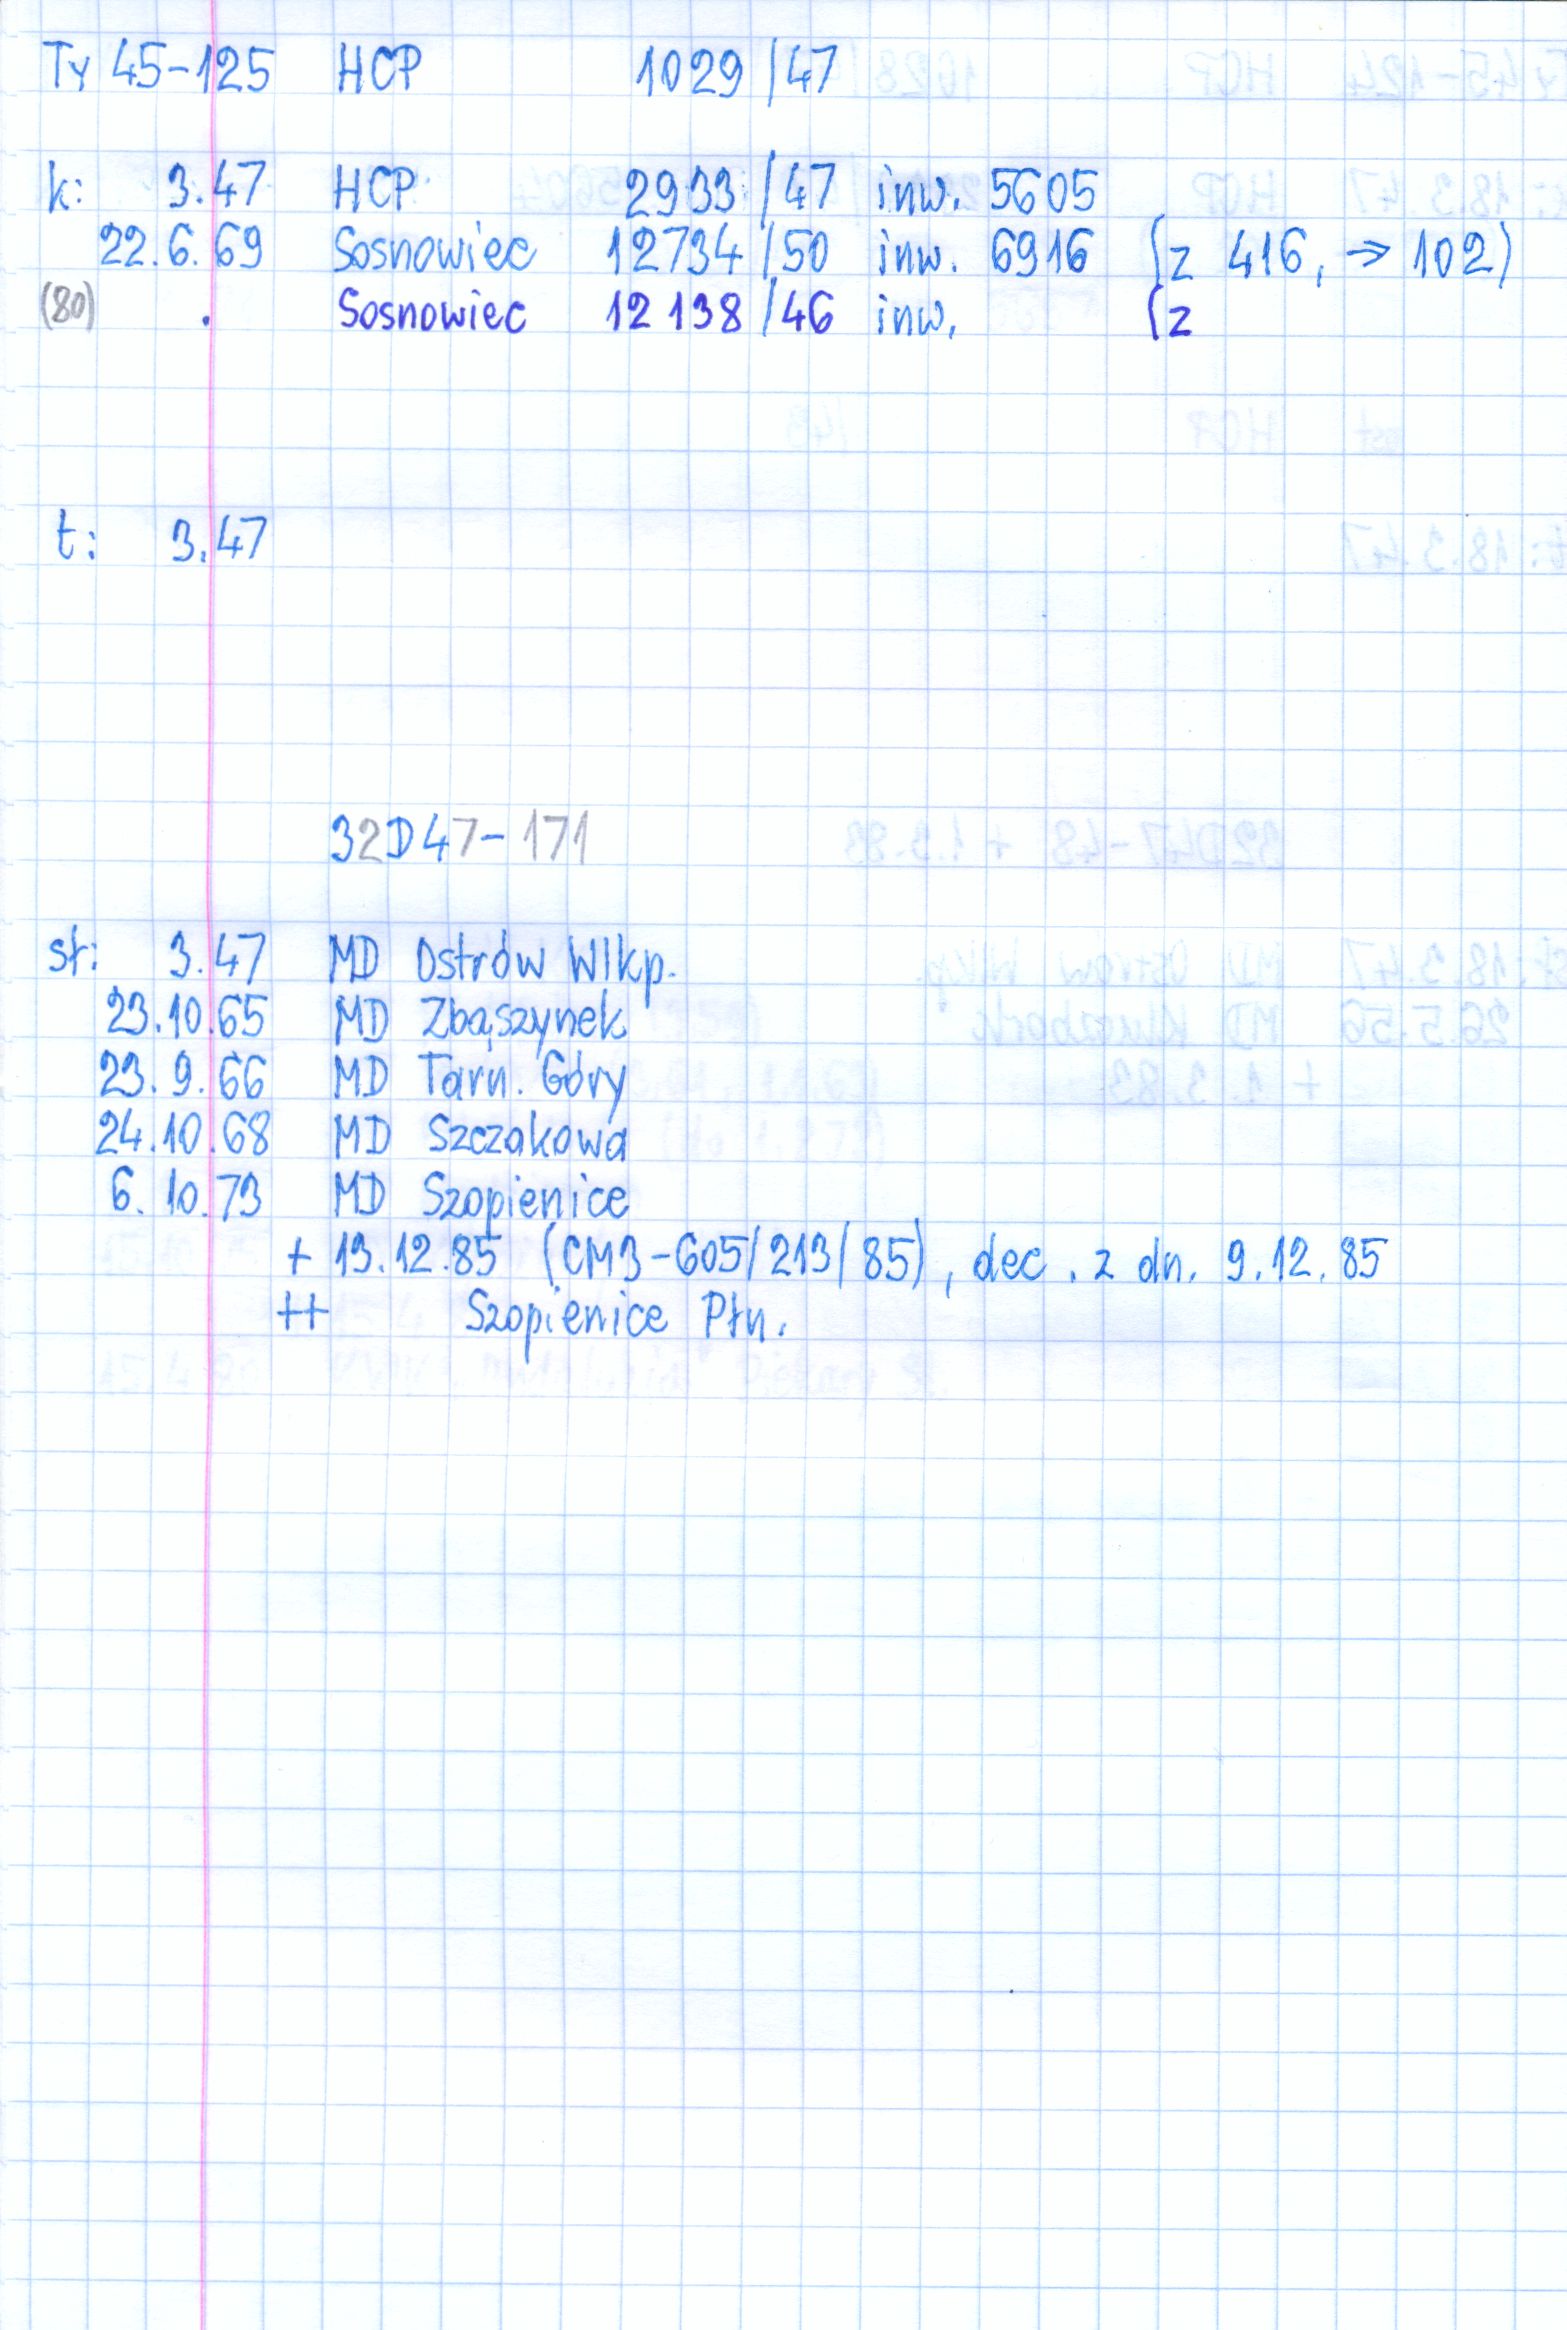 Ty 45-125 HCP 1029/47
k: 3.47 HCP 2933/47 inw. 5605
22.6.69 Sosnowiec 12734/50 inw. 6916 (z 416, → 102)
(80) . Sosnowiec 12138/46 inw. (z
t: 3.47
32D47-171
st: 3.47 MD Ostrów Wlkp.
23.10.65 MD Zbąszynek
23.9.66 MD Tarn. Góry
24.10.68 MD Szczakowa
6.10.73 MD Szopienice
+ 13.12.85 (CM3-605/213/85), dec. z dn. 9.12.85
++ Szopienice Płn.